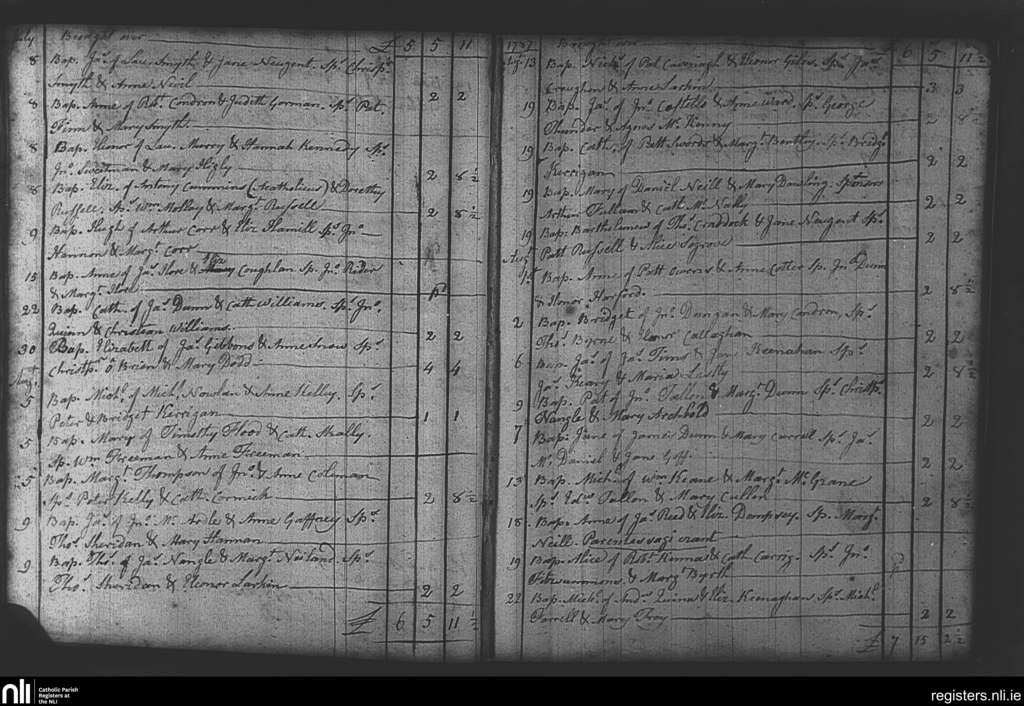 July Brought over £ 5 5 11
8 Bap. Jas. of Lau. Smyth & Jane Naugent. Sps. Christr.
Smyth & Anne Nevil 2 2
8 Bap. Anne of Robt. Condron & Judith Gorman. Sps. Pat.
Finn & Mary Smyth.
8 Bap. Elionor of Lau. Morry & Hannah Kennedy Sps.
Jno. Sweetman & Mary Higly 2 8½
8 Bap. Eliz. of Antony Cummins (Acatholicus) & Dorothy
Russell. Sps. Wm. Molloy & Margt. Russell 2 8½
9 Bap. Hugh of Arthur Corr & Eliz Hamill Sps. Jno.
Hannon & Margt. Corr
15 Bap. Anne of Jas. Hore & Coughlan Sp. Jno. Rider
& Margt. Hore
22 Bap. Cath. of Jas. Dunn & Cath Williams. Sps. Jno.
Quinn & Christian Williams. 2 2
30 Bap. Elizabeth of Jas. Gibbons & Anne Sps.
Christr. O Brien & Mary Dodd 4 4
Augt.
5 Bap. Mich. of Mich. Nowlan & Anne Kelley. Sps.
Peter & Bridget Kerrigan 1 1
5 Bap. Mary of Timothy Flood & Cath.
Sp. Wm. Freeman & Anne Freeman.
5 Bap. Margt. Thompson of Jno. & Anne Coleman
Sps. Peter Kelly & Cath. Cormick 2 8½
9 Bap. Jas. of Jno. Mc. Ardle & Anne Gaffney Sps.
Thos. Sheridan & Mary Hannan
9 Bap. Tho. of Jas. Nangle & Margt. Sps.
Thos. Sheridan & Elionor Larkin 2 2
£ 6 5 11½
1787 Brought over £ 6 5 11½
13 Bap. Nichs. of Pat Cavenagh & Elionor Sps. Jas.
Croughan & Anne Larkin 3 3
19 Bap. Jas. of Jno. Costello & Anne Ward. Sps. George
Thunder & Agnes Mc. Kenny 2 8½
19 Bap. Cath. of Patt Swords & Margt. Bentley Sps. Bridgt.
Kerrigan 2 2
19 Bap. Mary of Daniel Neill & Mary Dowling. Sponsors
Arthur Fullam & Cath Mc. Nally 2 2
19 Bap. Bartholomew of Thos. Craddock & Jane Naugent Sps.
Patt Russell & Alice Segrove 2 2
Augt.
1st. Bap. Anne of Patt Owens & Anne Cotter Sp. Jno. Dunn
& Honor Harford. 2 8½
2 Bap. Bridget of Jno. Dungan & Mary Condron, Sps.
Thos. Byrne & Elionr. Callaghan 2 2
6 Bap. Jas. of Jas. Timns & Jan Keenahan Sps.
Jas. Keary & Maria 2 8½
9 Bap. Pat of Jno. Fallon & Margt. Dunn Sps. Christr.
Nangle & Mary Archbold 2 2
7 Bap. Jane of James Dunn & Mary Carroll Sps. Jas.
Mc. Daniel & Jane Goff. 2 2
13 Bap. Michl. of Wm. Keane & Margt. Mc. Grane
Sps. Edwd. Fallon & Mary Cullen 2 8½
18 Bap. Anne of Jas. Reed & Eliz. Dempsey. Sp. Margt.
Neill. Parentes vagi erant
19 Bap. Alice of Robt. Kinna & Cath Sps. Jno.
Fitzsimmons & Margt. Byrth
22 Bap. Mich. of Andw. Quinn & Eliz. Keenaghan Sps. Michl.
Farrell & Mary Troy 2 2
£ 7 15 2½
nli Catholic Parish
Registers at
the NLI
registers.nli.ie